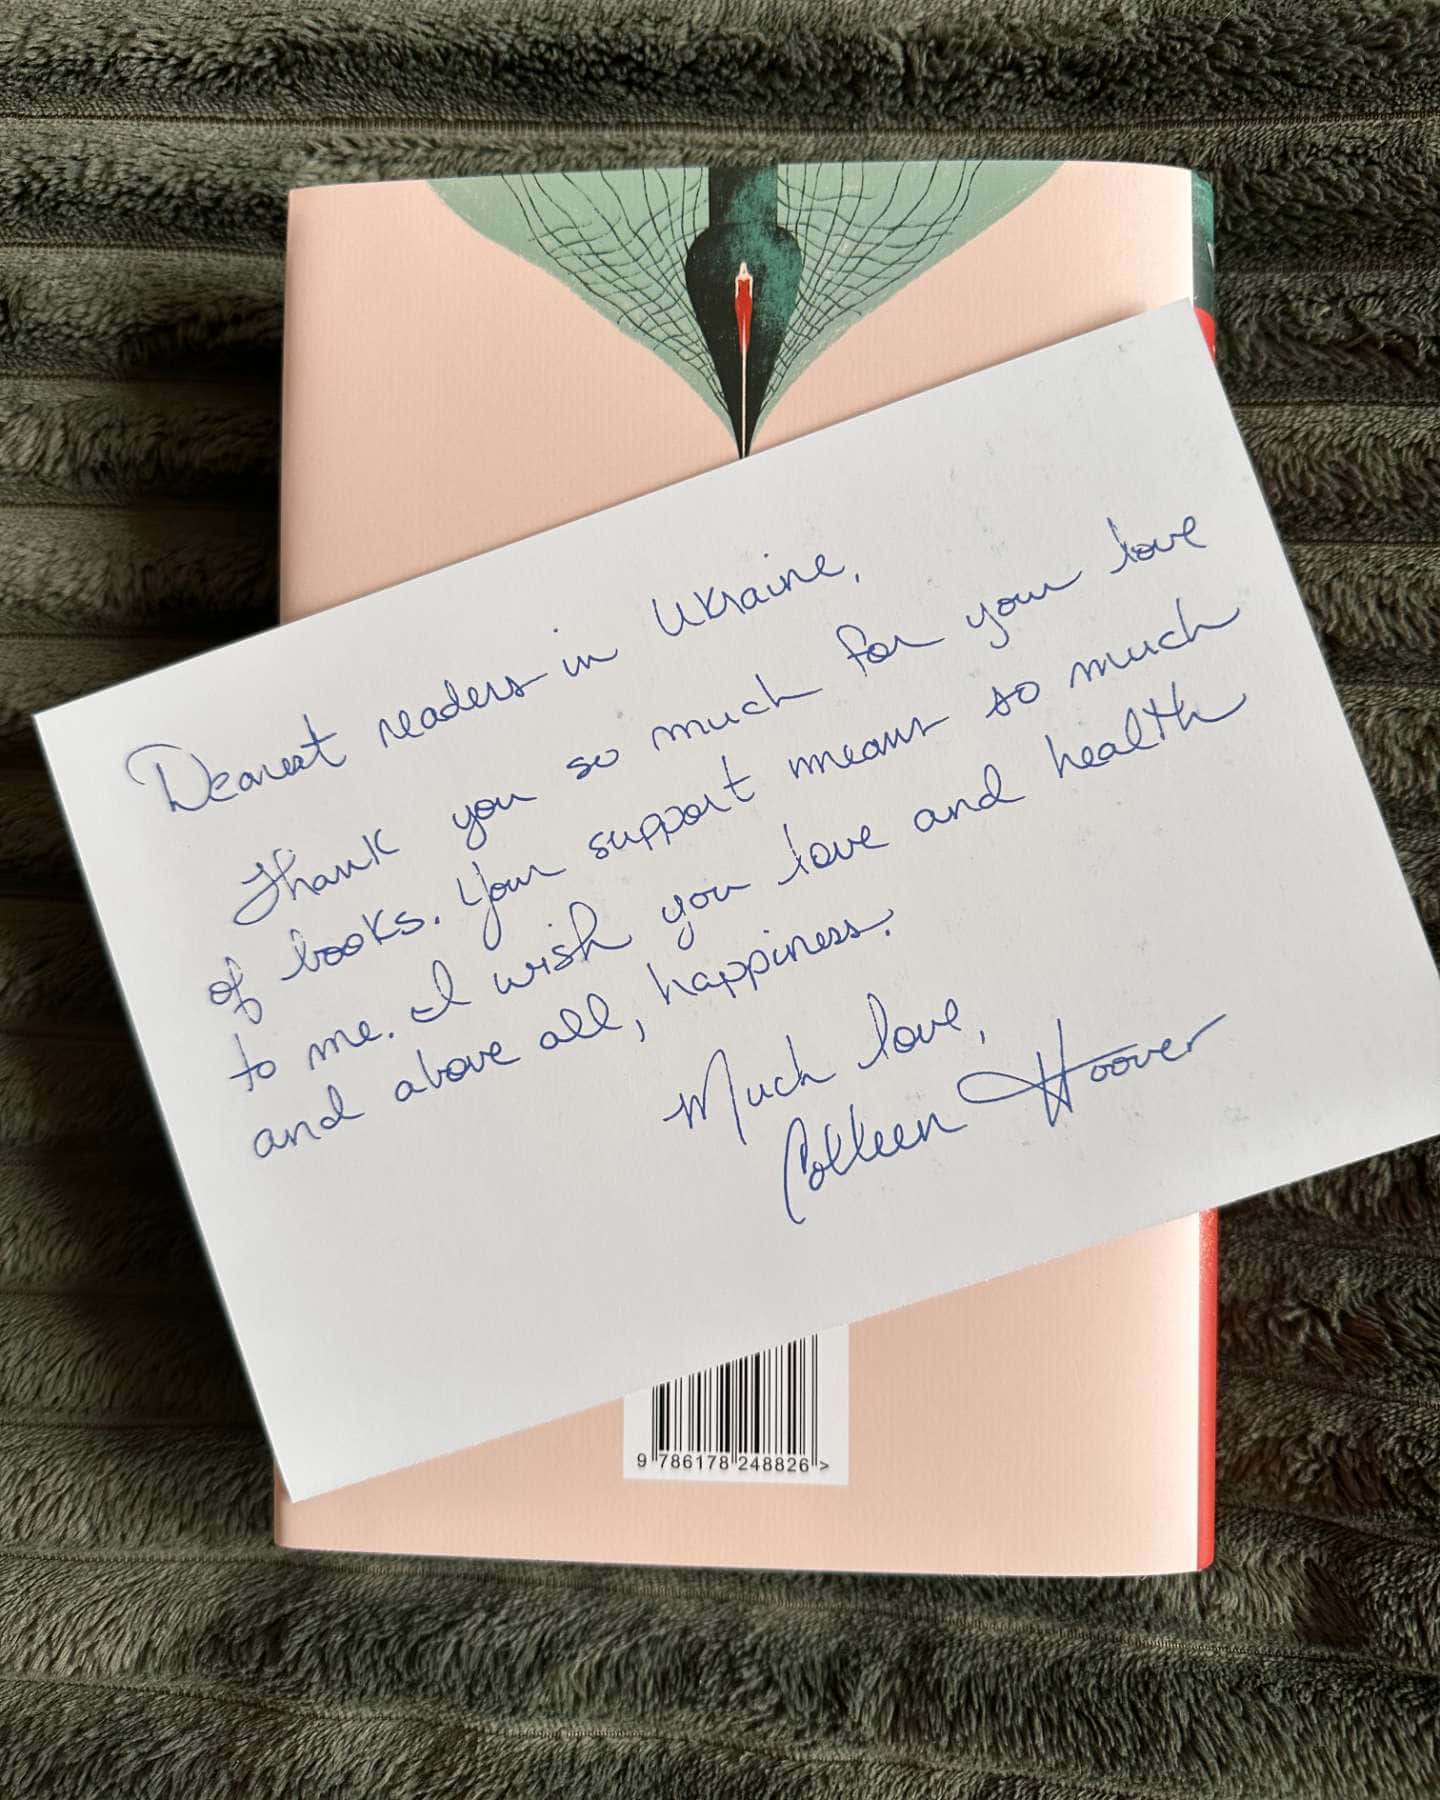 Dearest readers in Ukraine,
Thank you so much for your love
of books. Your support means so much
to me. I wish you love and health
and above all, happiness.
Much love,
Colleen Hoover
9 786178 248826 >